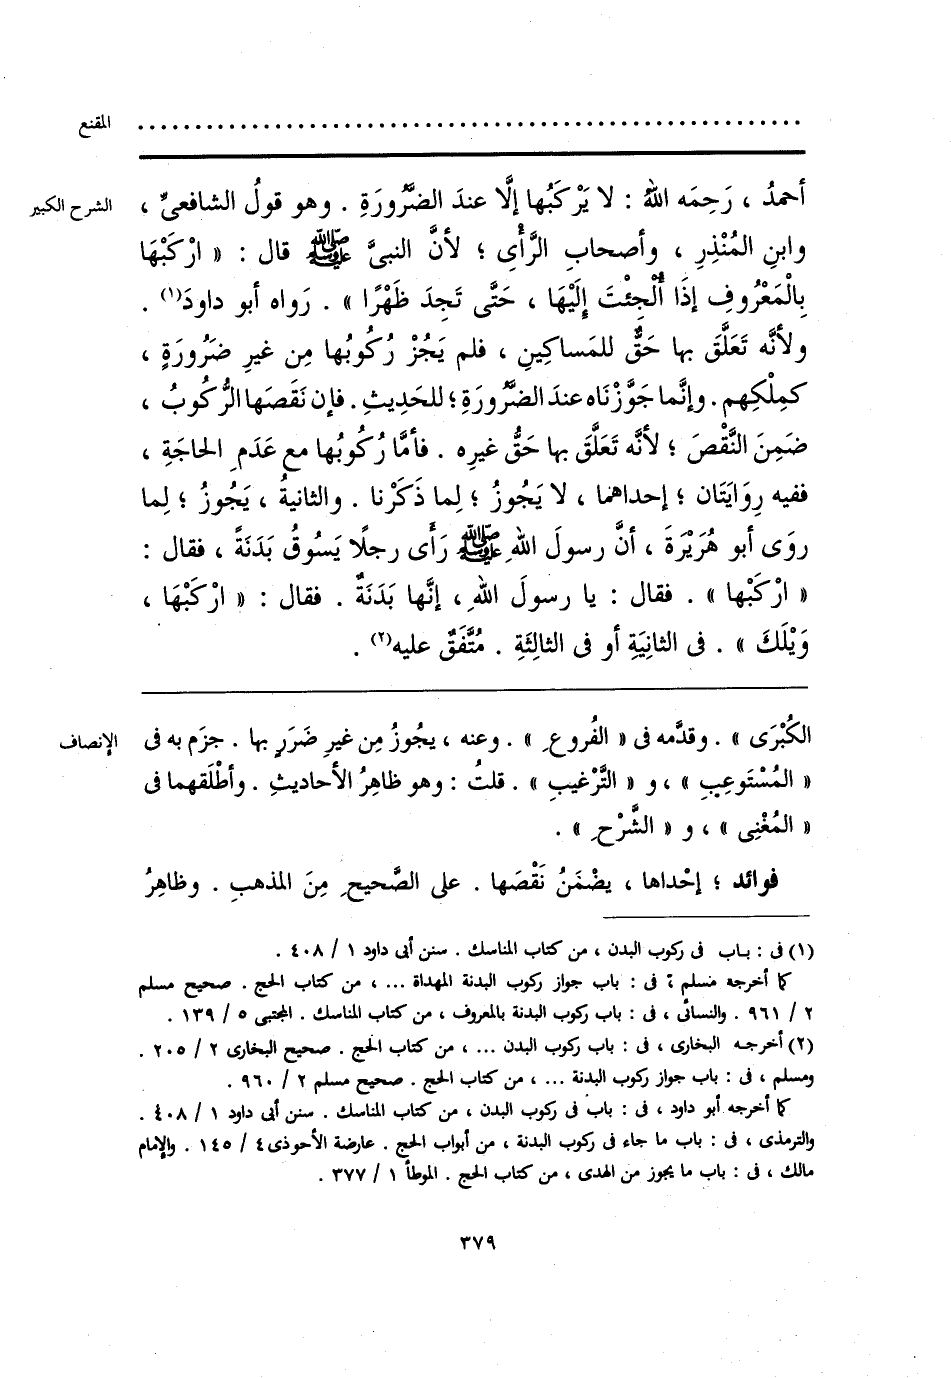 المقنع ..........................................................
الشرح الكبير أحمدُ ، رَحِمَه اللهُ : لا يَرْكَبُها إلَّا عندَ الضَّرُورَةِ . وهو قولُ الشافعىِّ ،
وابنِ المُنْذِرِ ، وأصحابِ الرَّأْىِ ؛ لأنَّ النبىَّ ﷺ قال : « ارْكَبْهَا
بِالْمَعْرُوفِ إذَا أُلْجِئْتَ إلَيْهَا ، حَتَّى تَجِدَ ظَهْرًا » . رَواه أبو داودَ(١) .
ولأنَّه تَعَلَّقَ بها حَقٌّ للمَساكِينِ ، فلم يَجُزْ رُكُوبُها مِن غيرِ ضَرُورَةٍ ،
كمِلْكِهم . وإنَّما جَوَّزْنَاه عندَ الضَّرُورَةِ ؛ للحَدِيثِ . فإن نَقَصَها الرُّكُوبُ ،
ضَمِنَ النَّقْصَ ؛ لأنَّه تَعَلَّقَ بها حَقُّ غيرِه . فأمَّا رُكُوبُها مع عَدَمِ الحاجَةِ ،
ففيه رِوَايَتَان ؛ إحداهما ، لا يَجُوزُ ؛ لِما ذَكَرْنا . والثانيةُ ، يَجُوزُ ؛ لِما
روَى أبو هُرَيْرَةَ ، أنَّ رسولَ اللهِ ﷺ رَأَى رجلًا يَسُوقُ بَدَنَةً ، فقال :
« ارْكَبْها » . فقال : يا رسولَ اللهِ ، إنَّها بَدَنَةٌ . فقال : « ارْكَبْهَا ،
وَيْلَكَ » . فى الثانِيَةِ أو فى الثالِثَةِ . مُتَّفَقٌ عليه(٢) .
الإنصاف الكُبْرَى » . وقدَّمه فى « الفُروعِ » . وعنه ، يجُوزُ مِن غيرِ ضَرَرٍ بها . جزَم به فى
« المُسْتَوعِبِ » ، و « التَّرْغيبِ » . قلتُ : وهو ظاهِرُ الأحاديثِ . وأطْلَقهما فى
« المُغْنِى » ، و « الشَّرْحِ » .
فوائد ؛ إحْداها ، يضْمَنُ نَقْصَها . على الصَّحيحِ مِنَ المذهبِ . وظاهِرُ
(١) فى : باب فى ركوب البدن ، من كتاب المناسك . سنن أبى داود ١ / ٤٠٨ .
كما أخرجه مسلم ، فى : باب جواز ركوب البدنة المهداة ... ، من كتاب الحج . صحيح مسلم
٢ / ٩٦١ . والنسائى ، فى : باب ركوب البدنة بالمعروف ، من كتاب المناسك . المجتبى ٥ / ١٣٩ .
(٢) أخرجه البخارى ، فى : باب ركوب البدن ... ، من كتاب الحج . صحيح البخارى ٢ / ٢٠٥ .
ومسلم ، فى : باب جواز ركوب البدنة ... ، من كتاب الحج . صحيح مسلم ٢ / ٩٦٠ .
كما أخرجه أبو داود ، فى : باب فى ركوب البدن ، من كتاب المناسك . سنن أبى داود ١ / ٤٠٨ .
والترمذى ، فى : باب ما جاء فى ركوب البدنة ، من أبواب الحج . عارضة الأحوذى ٤ / ١٤٥ . والإمام
مالك ، فى : باب ما يجوز من الهدى ، من كتاب الحج . الموطأ ١ / ٣٧٧ .
٣٧٩